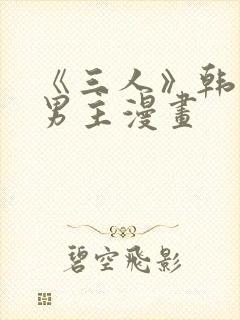 《三人》韩
男主漫畫
碧空飛影